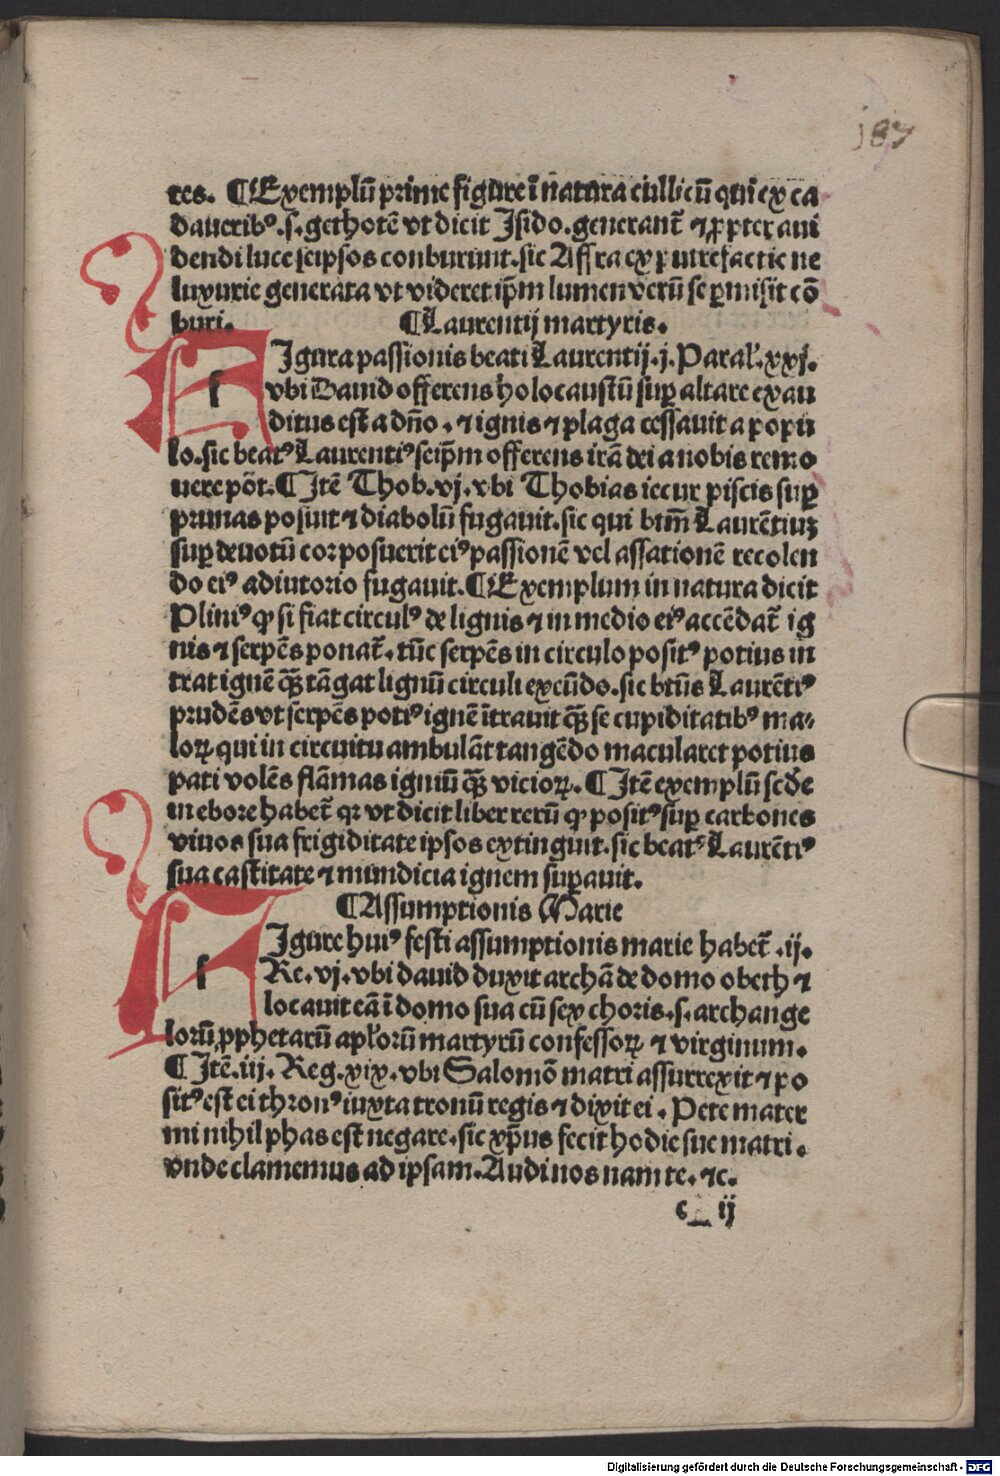 187
tes. ¶Exemplū prime figure ī natura ciillicū qui ex ca
daueribꝰ .s. gethotē vt dicit Isido. generant̄ ⁊ ꝓpter aui
dendi luce seipsos conburunt. sic Affra ex putrefactione
luxurie generata vt videret ip̄m lumen verū se ꝑmisit cō
buri. ¶Laurentij martyris.
FIgura passionis beati Laurentij .j. Paral̄. xxj.
vbi Dauid offerens holocaustū suꝑ altare exau
ditus est a dn̄o . ⁊ ignis ⁊ plaga cessauit a popu
lo. sic beatꝰ Laurentiꝰ seip̄m offerens irā dei a nobis remo
uere pōt. ¶Itē Thob. vj. vbi Thobias iecur piscis suꝑ
prunas posuit ⁊ diabolū fugauit. sic qui btm̄ Laurētiuꝫ
suꝑ deuotū cor posuerit eiꝰ passionē vel assationē recolen
do eiꝰ adiutorio fugauit. ¶Exemplum in natura dicit
Pliniꝰ ꝙ si fiat circulꝰ de lignis ⁊ in medio eiꝰ accēdat̄ ig
nis ⁊ serpēs ponat̄. tūc serpēs in circulo positꝰ potius in
trat ignē qꝫ̄ tāgat lignū circuli exeūdo. sic bt̄us Laurētiꝰ
prudēs vt serpēs potiꝰ ignē ītrauit qꝫ̄ se cupiditatibꝰ ma-
loꝝ qui in circuitu ambulāt tangēdo macularet potius
pati volēs flāmas igniū qꝫ̄ vicioꝝ. ¶Itē exemplū scd̄e
in ebore habet̄ qꝛ vt dicit liber rerū ꝙ positꝰ suꝑ carbones
viuos sua frigiditate ipsos extinguit. sic beatꝰ Laurētiꝰ
sua castitate ⁊ mundicia ignem suꝑauit.
¶Assumptionis Marie
FIgure huiꝰ festi assumptionis marie habet̄ .ij.
Re. vj. vbi dauid duxit archā de domo obeth ⁊
locauit eā ī domo sua cū sex choris .s. archange
lorū ꝓphetarū apl̄orū martyrū confessoꝝ ⁊ virginum.
¶Itē .iij. Reg. xix. vbi Salomō matri assurrexit ⁊ po
sitꝰ est ei thronꝰ iuxta tronū regis ⁊ dixit ei . Pete mater
mi nihil phas est negare. sic xp̄us fecit hodie sue matri.
vnde clamemus ad ipsam. Audi nos nam te. ⁊c.
c ij
Digitalisierung gefördert durch die Deutsche Forschungsgemeinschaft - DFG